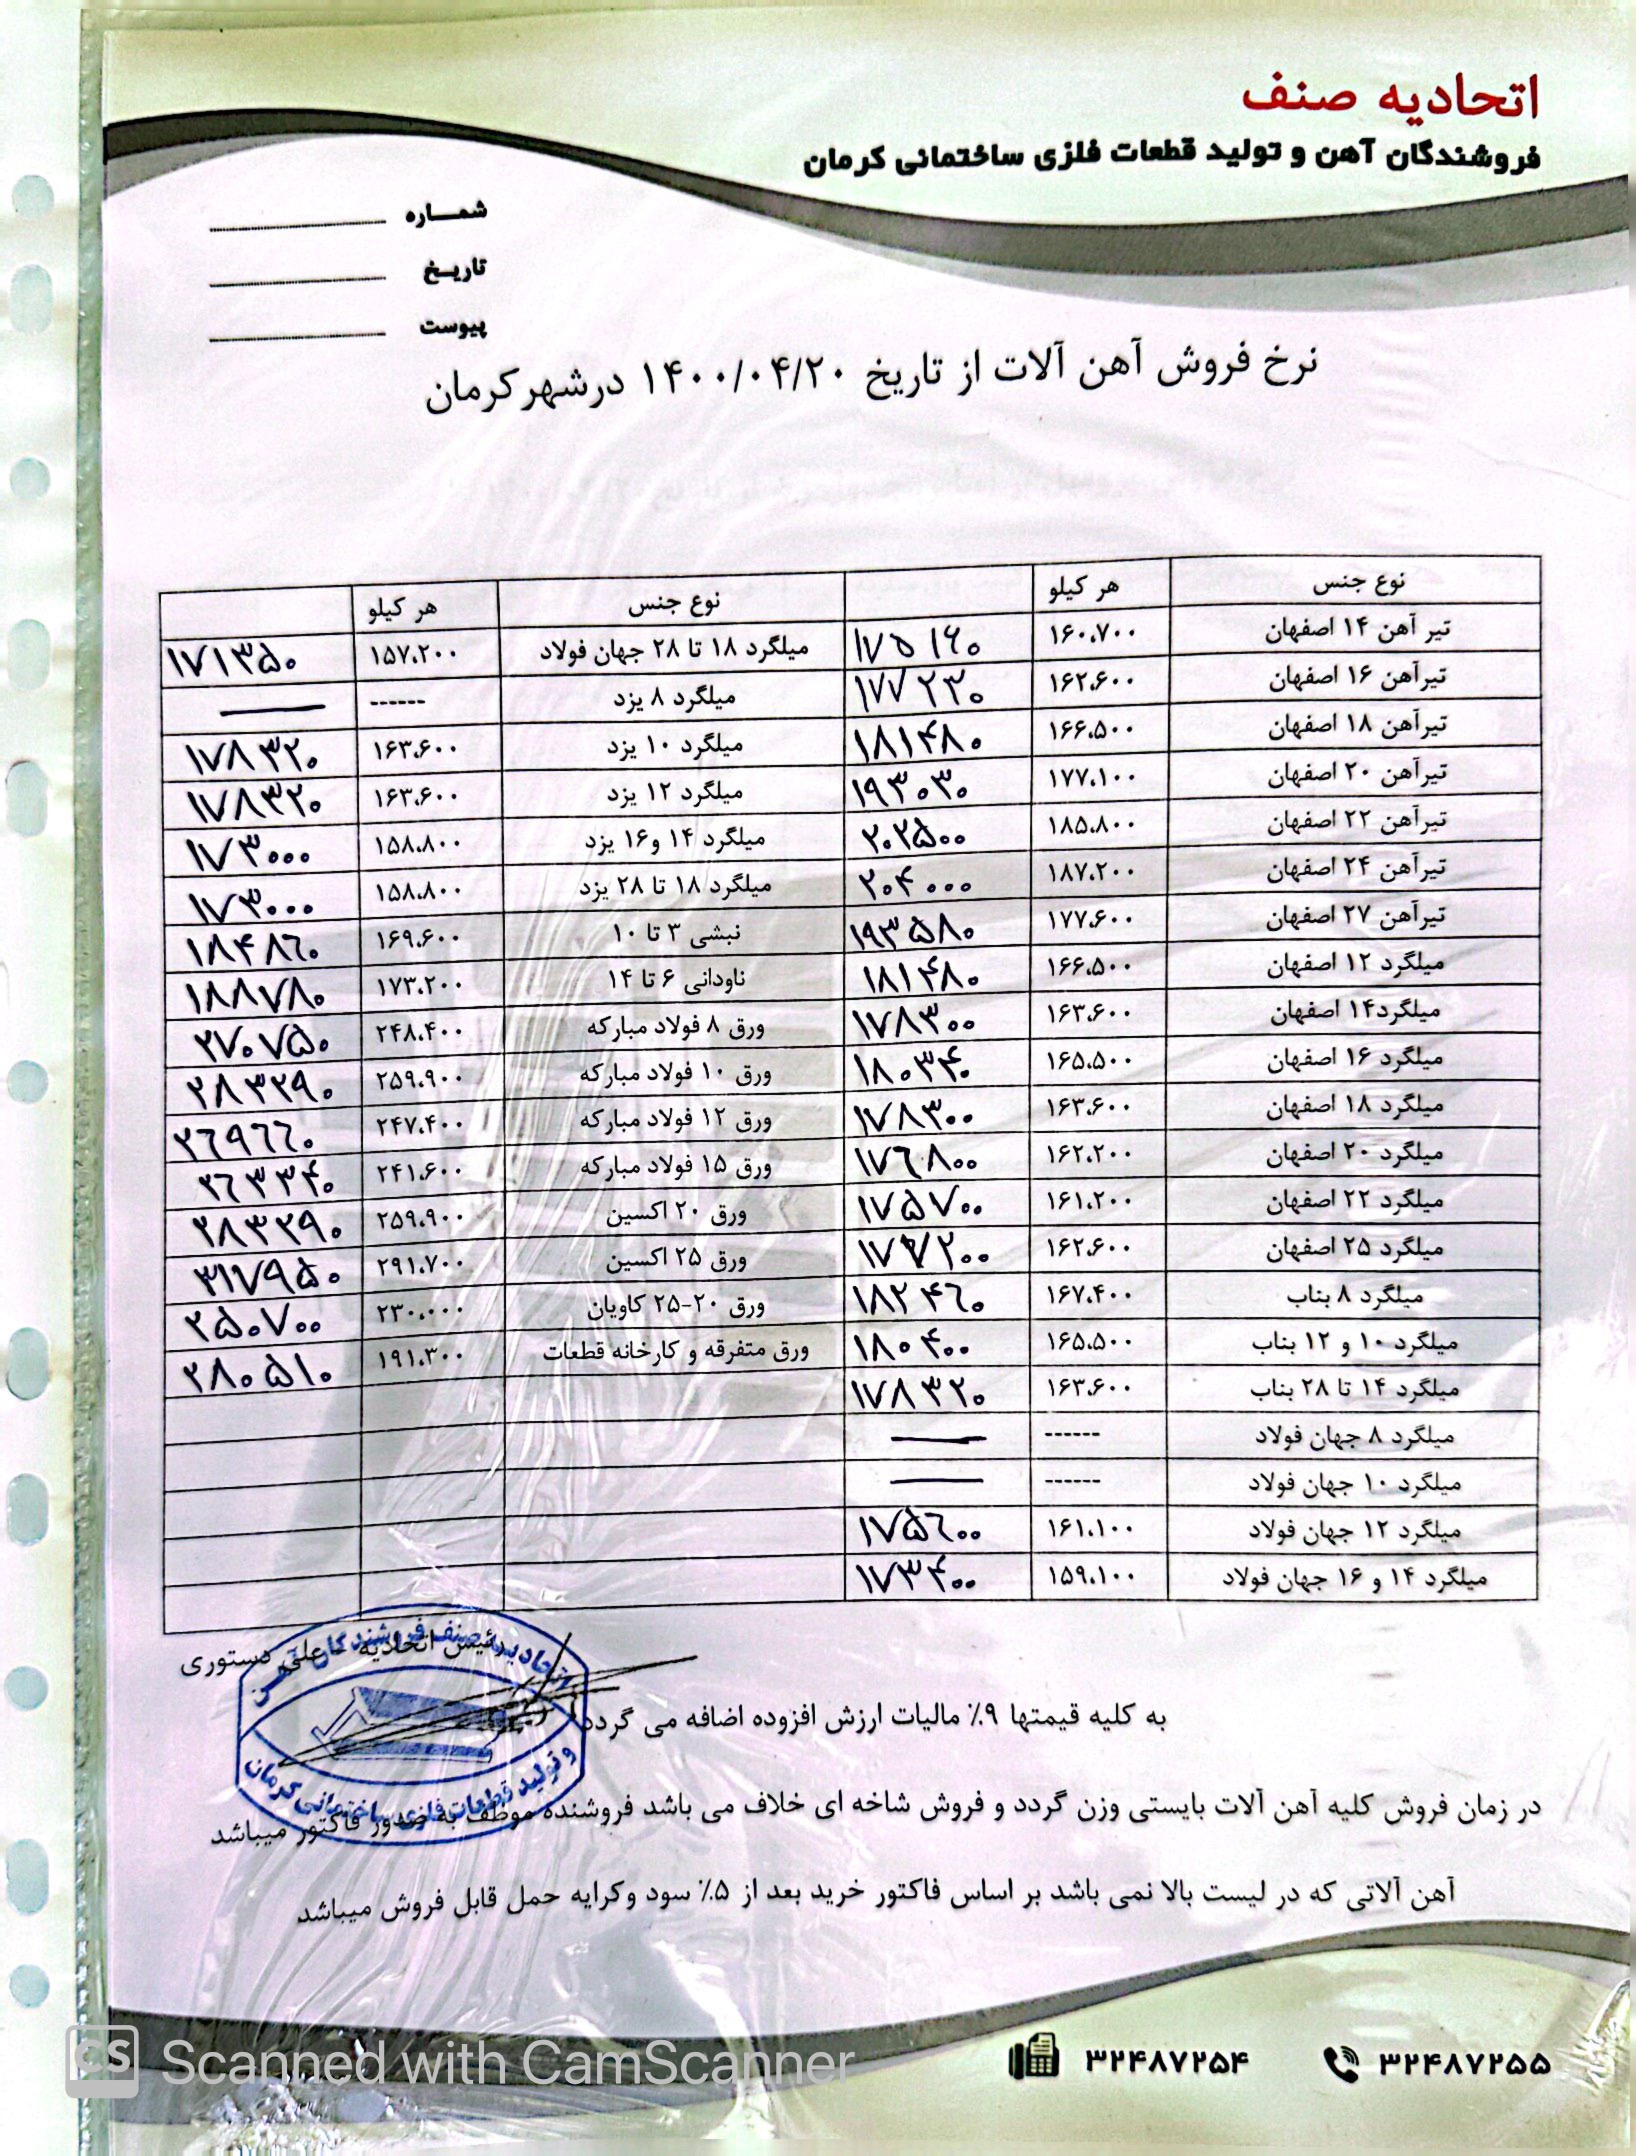 اتحادیه صنف
فروشندگان آهن و تولید قطعات فلزی ساختمانی کرمان
شماره
تاریخ
پیوست
نرخ فروش آهن آلات از تاریخ ۱۴۰۰/۰۴/۲۰ درشهر کرمان
نوع جنس هر کیلو نوع جنس هر کیلو
تیر آهن ۱۴ اصفهان ۱۶۰،۷۰۰ ۱۷۵۱۶۰ میلگرد ۱۸ تا ۲۸ جهان فولاد ۱۵۷،۲۰۰ ۱۷۱۳۵۰
تیرآهن ۱۶ اصفهان ۱۶۲،۶۰۰ ۱۷۷۲۳۰ میلگرد ۸ یزد ------ —
تیرآهن ۱۸ اصفهان ۱۶۶،۵۰۰ ۱۸۱۴۸۰ میلگرد ۱۰ یزد ۱۶۳،۶۰۰ ۱۷۸۳۲۰
تیرآهن ۲۰ اصفهان ۱۷۷،۱۰۰ ۱۹۳۰۳۰ میلگرد ۱۲ یزد ۱۶۳،۶۰۰ ۱۷۸۳۲۰
تیرآهن ۲۲ اصفهان ۱۸۵،۸۰۰ ۲۰۲۵۰۰ میلگرد ۱۴ و۱۶ یزد ۱۵۸،۸۰۰ ۱۷۳۰۰۰
تیرآهن ۲۴ اصفهان ۱۸۷،۲۰۰ ۲۰۴۰۰۰ میلگرد ۱۸ تا ۲۸ یزد ۱۵۸،۸۰۰ ۱۷۳۰۰۰
تیرآهن ۲۷ اصفهان ۱۷۷،۶۰۰ ۱۹۳۵۸۰ نبشی ۳ تا ۱۰ ۱۶۹،۶۰۰ ۱۸۴۸۶۰
میلگرد ۱۲ اصفهان ۱۶۶،۵۰۰ ۱۸۱۴۸۰ ناودانی ۶ تا ۱۴ ۱۷۳،۲۰۰ ۱۸۸۷۸۰
میلگرد۱۴ اصفهان ۱۶۳،۶۰۰ ۱۷۸۳۰۰ ورق ۸ فولاد مبارکه ۲۴۸،۴۰۰ ۲۷۰۷۵۰
میلگرد ۱۶ اصفهان ۱۶۵،۵۰۰ ۱۸۰۳۴۰ ورق ۱۰ فولاد مبارکه ۲۵۹،۹۰۰ ۲۸۳۲۹۰
میلگرد ۱۸ اصفهان ۱۶۳،۶۰۰ ۱۷۸۳۰۰ ورق ۱۲ فولاد مبارکه ۲۴۷،۴۰۰ ۲۶۹۶۶۰
میلگرد ۲۰ اصفهان ۱۶۲،۲۰۰ ۱۷۶۸۰۰ ورق ۱۵ فولاد مبارکه ۲۴۱،۶۰۰ ۲۶۳۳۴۰
میلگرد ۲۲ اصفهان ۱۶۱،۲۰۰ ۱۷۵۷۰۰ ورق ۲۰ اکسین ۲۵۹،۹۰۰ ۲۸۳۲۹۰
میلگرد ۲۵ اصفهان ۱۶۲،۶۰۰ ۱۷۷۲۰۰ ورق ۲۵ اکسین ۲۹۱،۷۰۰ ۳۱۷۹۵۰
میلگرد ۸ بناب ۱۶۷،۴۰۰ ۱۸۲۴۶۰ ورق ۲۰-۲۵ کاویان ۲۳۰،۰۰۰ ۲۵۰۷۰۰
میلگرد ۱۰ و ۱۲ بناب ۱۶۵،۵۰۰ ۱۸۰۴۰۰ ورق متفرقه و کارخانه قطعات ۱۹۱،۳۰۰ ۲۸۰۵۱۰
میلگرد ۱۴ تا ۲۸ بناب ۱۶۳،۶۰۰ ۱۷۸۳۲۰
میلگرد ۸ جهان فولاد ------ —
میلگرد ۱۰ جهان فولاد ------ —
میلگرد ۱۲ جهان فولاد ۱۶۱،۱۰۰ ۱۷۵۶۰۰
میلگرد ۱۴ و ۱۶ جهان فولاد ۱۵۹،۱۰۰ ۱۷۳۴۰۰
رئیس اتحادیه - علی دستوری
اتحادیه صنف فروشندگان آهن
و تولید قطعات فلزی ساختمانی کرمان
به کلیه قیمتها ۹٪ مالیات ارزش افزوده اضافه می گردد
در زمان فروش کلیه آهن آلات بایستی وزن گردد و فروش شاخه ای خلاف می باشد فروشنده موظف به صدور فاکتور میباشد
آهن آلاتی که در لیست بالا نمی باشد بر اساس فاکتور خرید بعد از ۵٪ سود وکرایه حمل قابل فروش میباشد
۳۲۴۸۷۲۵۵ ۳۲۴۸۷۲۵۴
CS Scanned with CamScanner